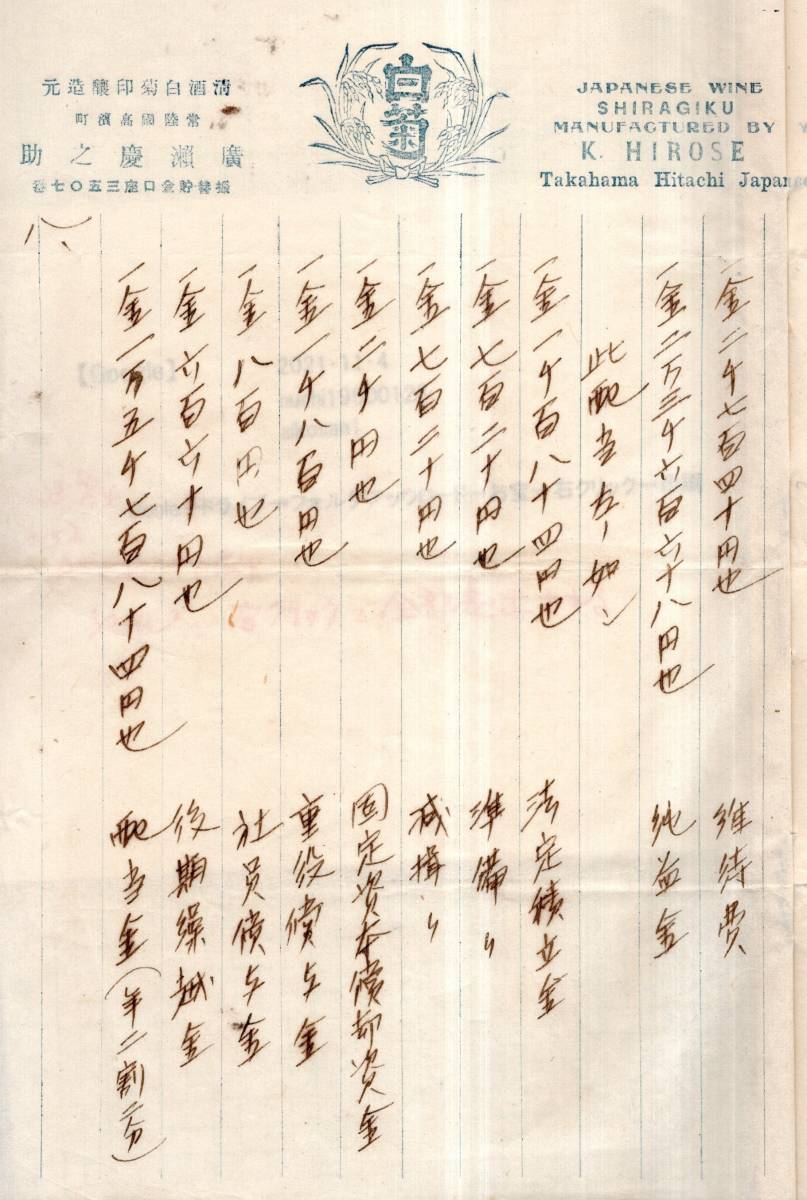 清酒白菊印釀造元
常陸國高濱町
廣瀨慶之助
振替貯金口座三五〇七番
白菊
JAPANESE WINE
SHIRAGIKU
MANUFACTURED BY
K. HIROSE
Takahama Hitachi Japan
一金二千七百四十円也 維持費
一金二万三千六百六十八円也 純益金
此配当左ノ如シ
一金一千百八十四円也 法定積立金
一金七百二十円也 準備〃
一金七百二十円也 減損〃
一金二千円也 固定資本償却資金
一金一千八百円也 重役償与金
一金八百円也 社員償与金
一金六百六十円也 後期繰越金
一金一万五千七百八十四円也 配当金(年二割二分)
八、